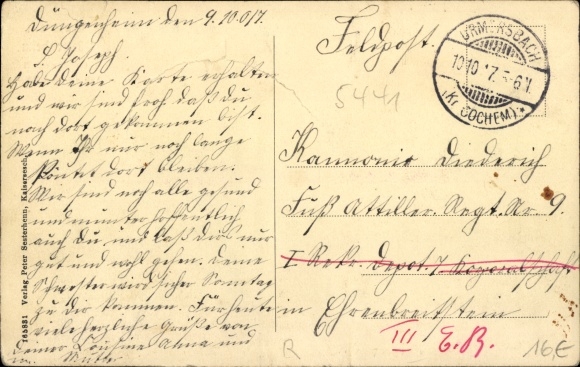 Düngenheim den 9.10.17.
L. Joseph.
Habe deine Karte erhalten
und wir sind froh daß du
nach dort gekommen bist.
Wenn Ihr nur noch lange
könntet dort bleiben.
Wir sind noch alle gesund
und munter hoffentlich
auch Du und laß dirs nur
gut und wohl gehen. Deine
Schwester wird sicher Sonntag
zu dir kommen. Für heute
viele herzliche Grüße von
deiner Cousine Anna und
Mutter
165831 Verlag Peter Sesterhenn, Kaisersesch
Feldpost.
5441
URMERSBACH
10.10.17. 5-6 N.
(Kr. COCHEM)
Kannonier Diederich
Fuß Attiller Regt. Nr 9.
I Rekr. Depot. 7 Korporalschaft
in Ehrenbreitstein
III E.R.
R
16,E